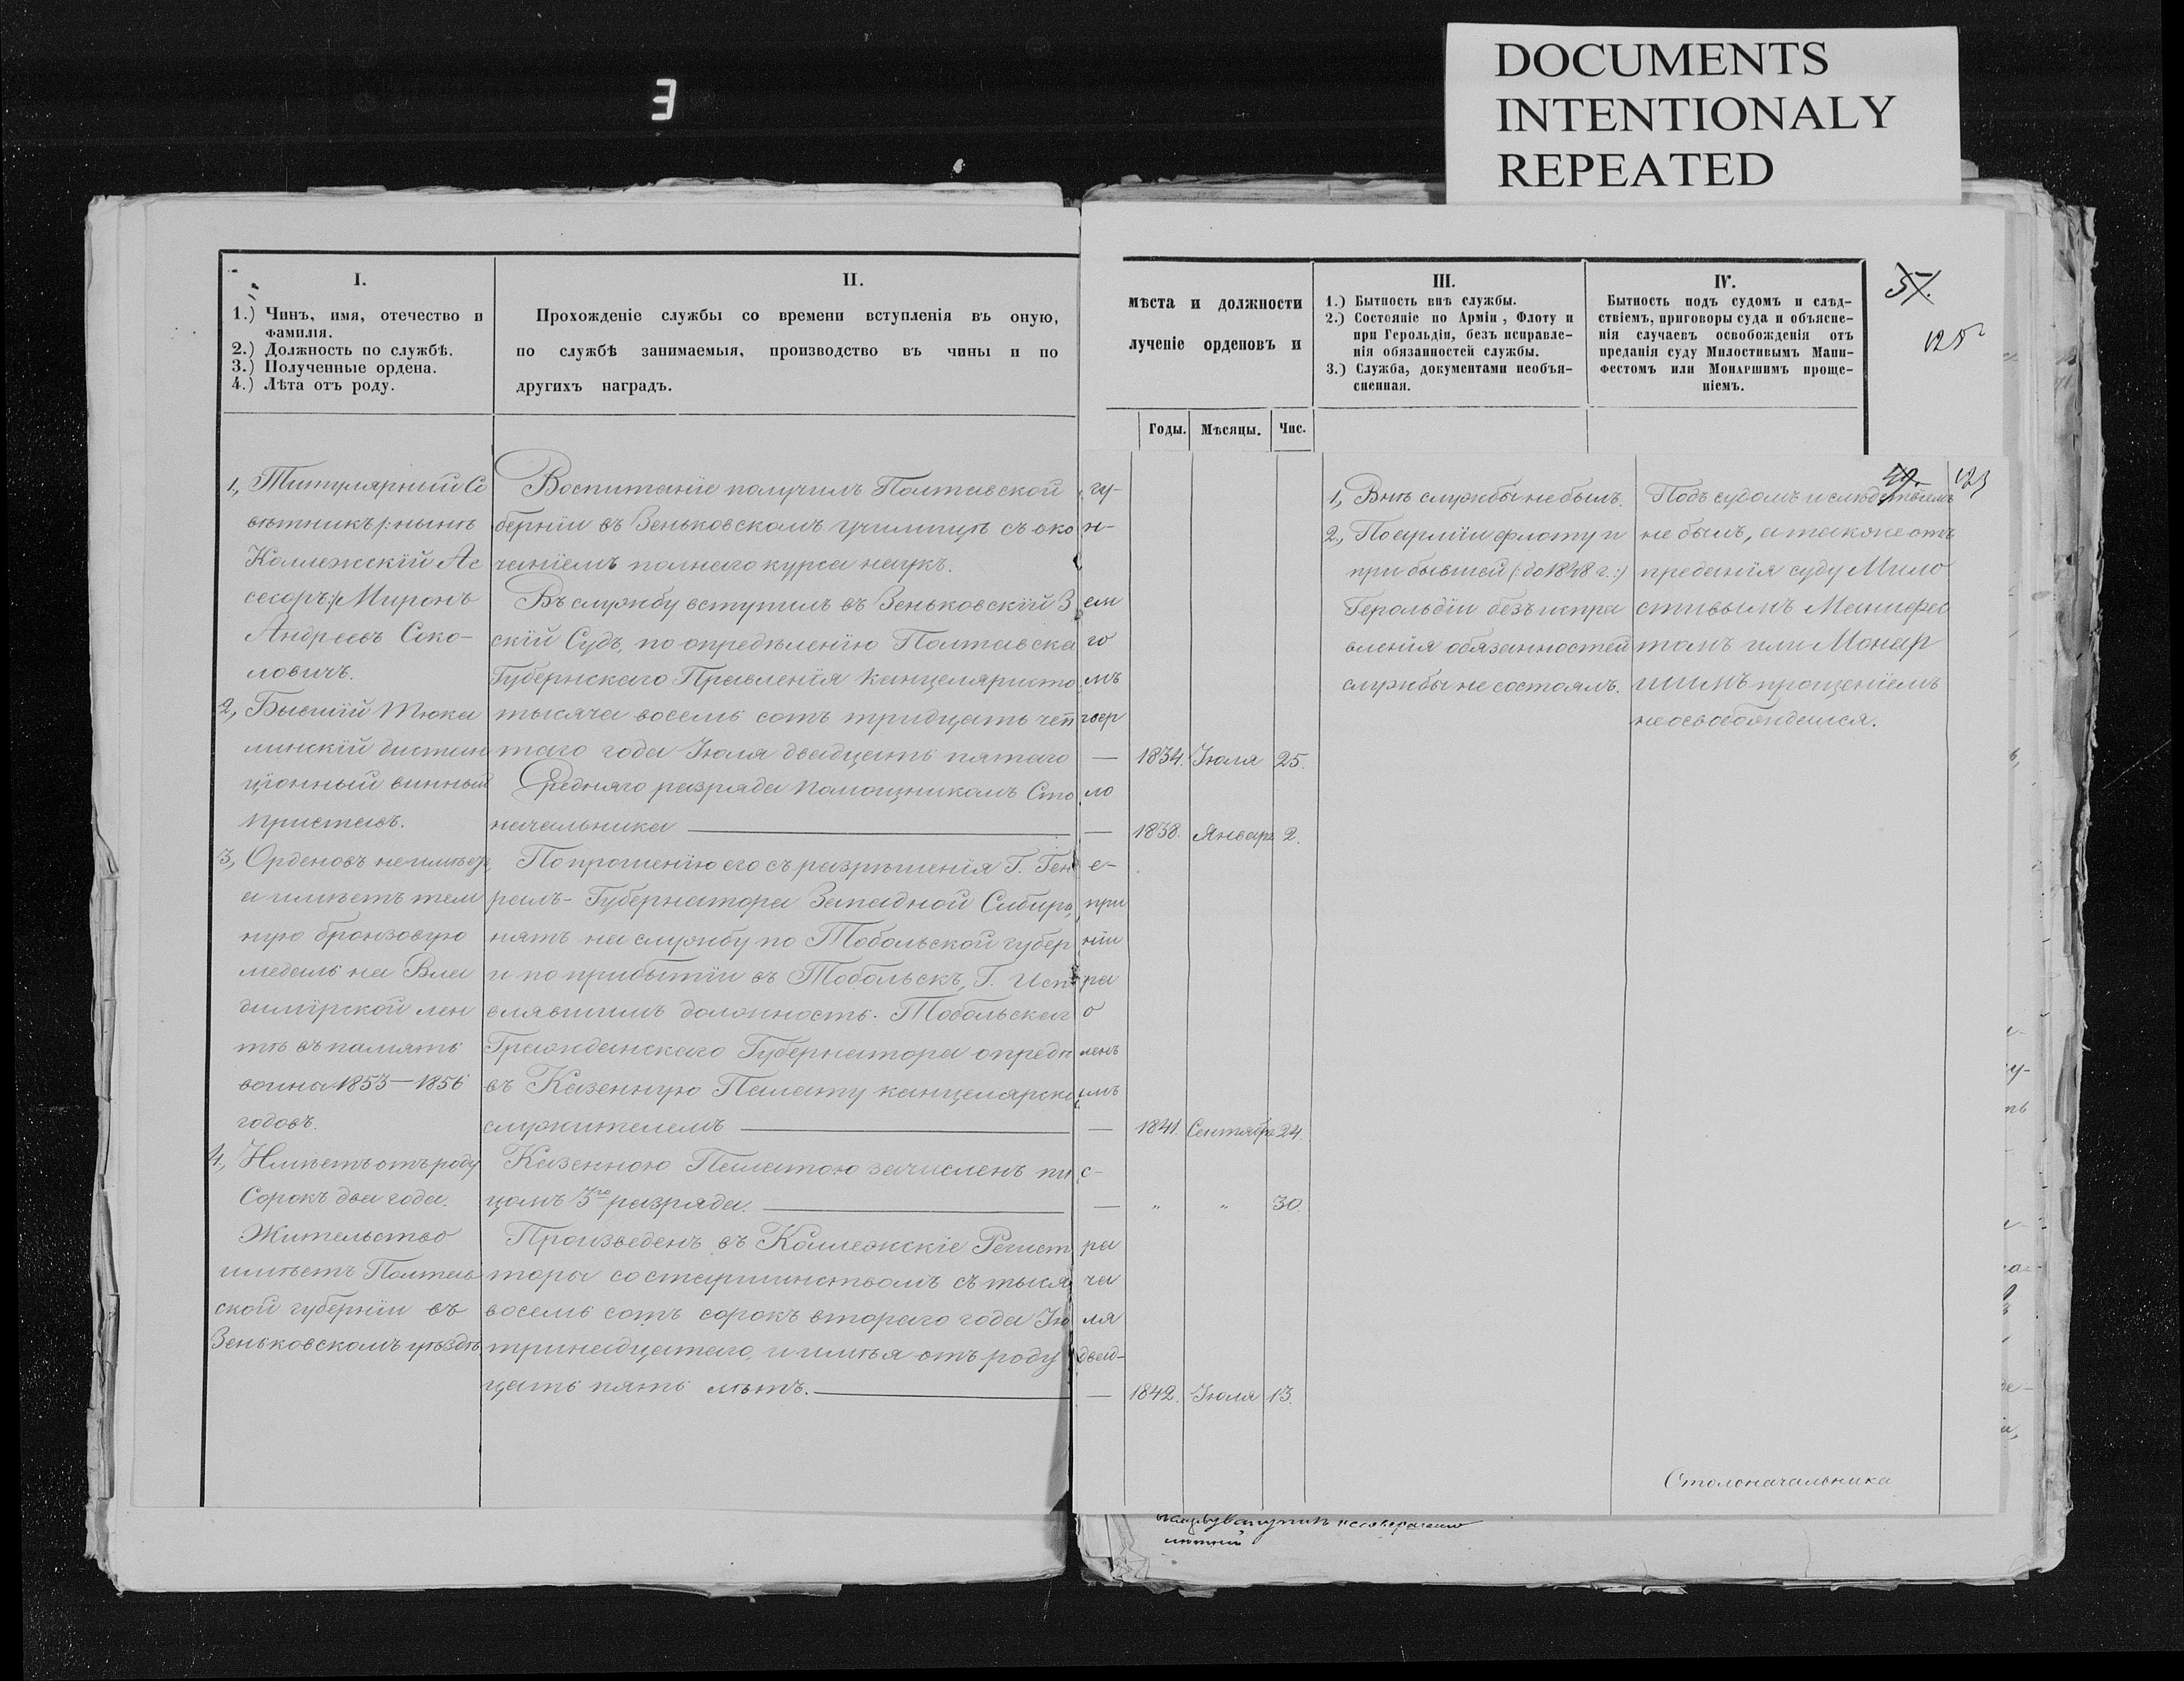 DOCUMENTS
INTENTIONALY
REPEATED
3
I.
1.) Чинъ, имя, отечество и
фамилія.
2.) Должность по службѣ.
3.) Полученные ордена.
4.) Лѣта отъ роду.
II.
Прохожденіе службы со времени вступленія въ оную,
по службѣ занимаемыя, производство въ чины и по
другихъ наградъ.
мѣста и должности
лученіе орденовъ и
Годы. Мѣсяцы. Чис.
III.
1.) Бытность внѣ службы.
2.) Состояніе по Арміи, Флоту и
при Герольдіи, безъ исправле-
нія обязанностей службы.
3.) Служба, документами необъя-
сненная.
IV.
Бытность подъ судомъ и слѣд-
ствіемъ, приговоры суда и объясне-
нія случаевъ освобожденія отъ
преданія суду Милостивымъ Мани-
фестомъ или Монаршимъ проще-
ніемъ.
57.
125
123
1, Титулярный Со
вѣтникъ /: нынѣ
Коллежскій Ас
сесоръ :/ Миронъ
Андреевъ Соко-
ловичъ.
2, Бывшій Тюка
линскій дистан
ціонный винный
приставъ.
3, Орденовъ не имѣетъ,
а имѣетъ тем
ную бронзовую
медаль на Вла
димірской лен
тѣ въ память
войны 1853–1856
годовъ.
4, Имѣетъ отъ роду
Сорокъ два года.
Жительство
имѣетъ Полтав
ской губерніи въ
Зеньковскомъ уѣздѣ
Воспитаніе получилъ Полтавской гу-
берніи въ Зеньковскомъ училищѣ съ окон-
чаніемъ полнаго курса наукъ.
Въ службу вступилъ въ Зеньковскій Зем
скій Судъ, по опредѣленію Полтавскаго
Губернскаго Правленія канцеляристомъ
тысяча восемь сотъ тридцать четвер
таго года Іюля двадцать пятаго — 1834. Іюля 25.
Средняго разряда помощникомъ Столо
начальника — 1838. Января 2.
По прошенію его съ разрѣшенія Г. Гене-
ралъ-Губернатора Западной Сибири, при
нятъ на службу по Тобольской губерніи
и по прибытіи въ Тобольскъ, Г. Испра
влявшимъ должность Тобольскаго
Гражданскаго Губернатора опредѣленъ
въ Казенную Палату канцелярскимъ
служителемъ — 1841. Сентября 24.
Казенною Палатою зачисленъ пис-
цомъ 3го разряда. — " " 30.
Произведенъ въ Коллежскіе Регистра
торы со старшинствомъ съ тысяча
восемь сотъ сорокъ втораго года Іюля
тринадцатаго, и имѣя отъ роду двад-
цать пять лѣтъ. — 1842. Іюля 13.
1, Внѣ службы не былъ.
2, По арміи флоту и
при бывшей (: до 1848 г. :)
Герольдіи безъ испра
вленія обязанностей
службы не состоялъ.
Подъ судомъ и слѣдствіемъ
не былъ, а также отъ
преданія суду Мило
стивымъ Манифес
томъ или Монар
шимъ прощеніемъ
не освобождался.
Столоначальника